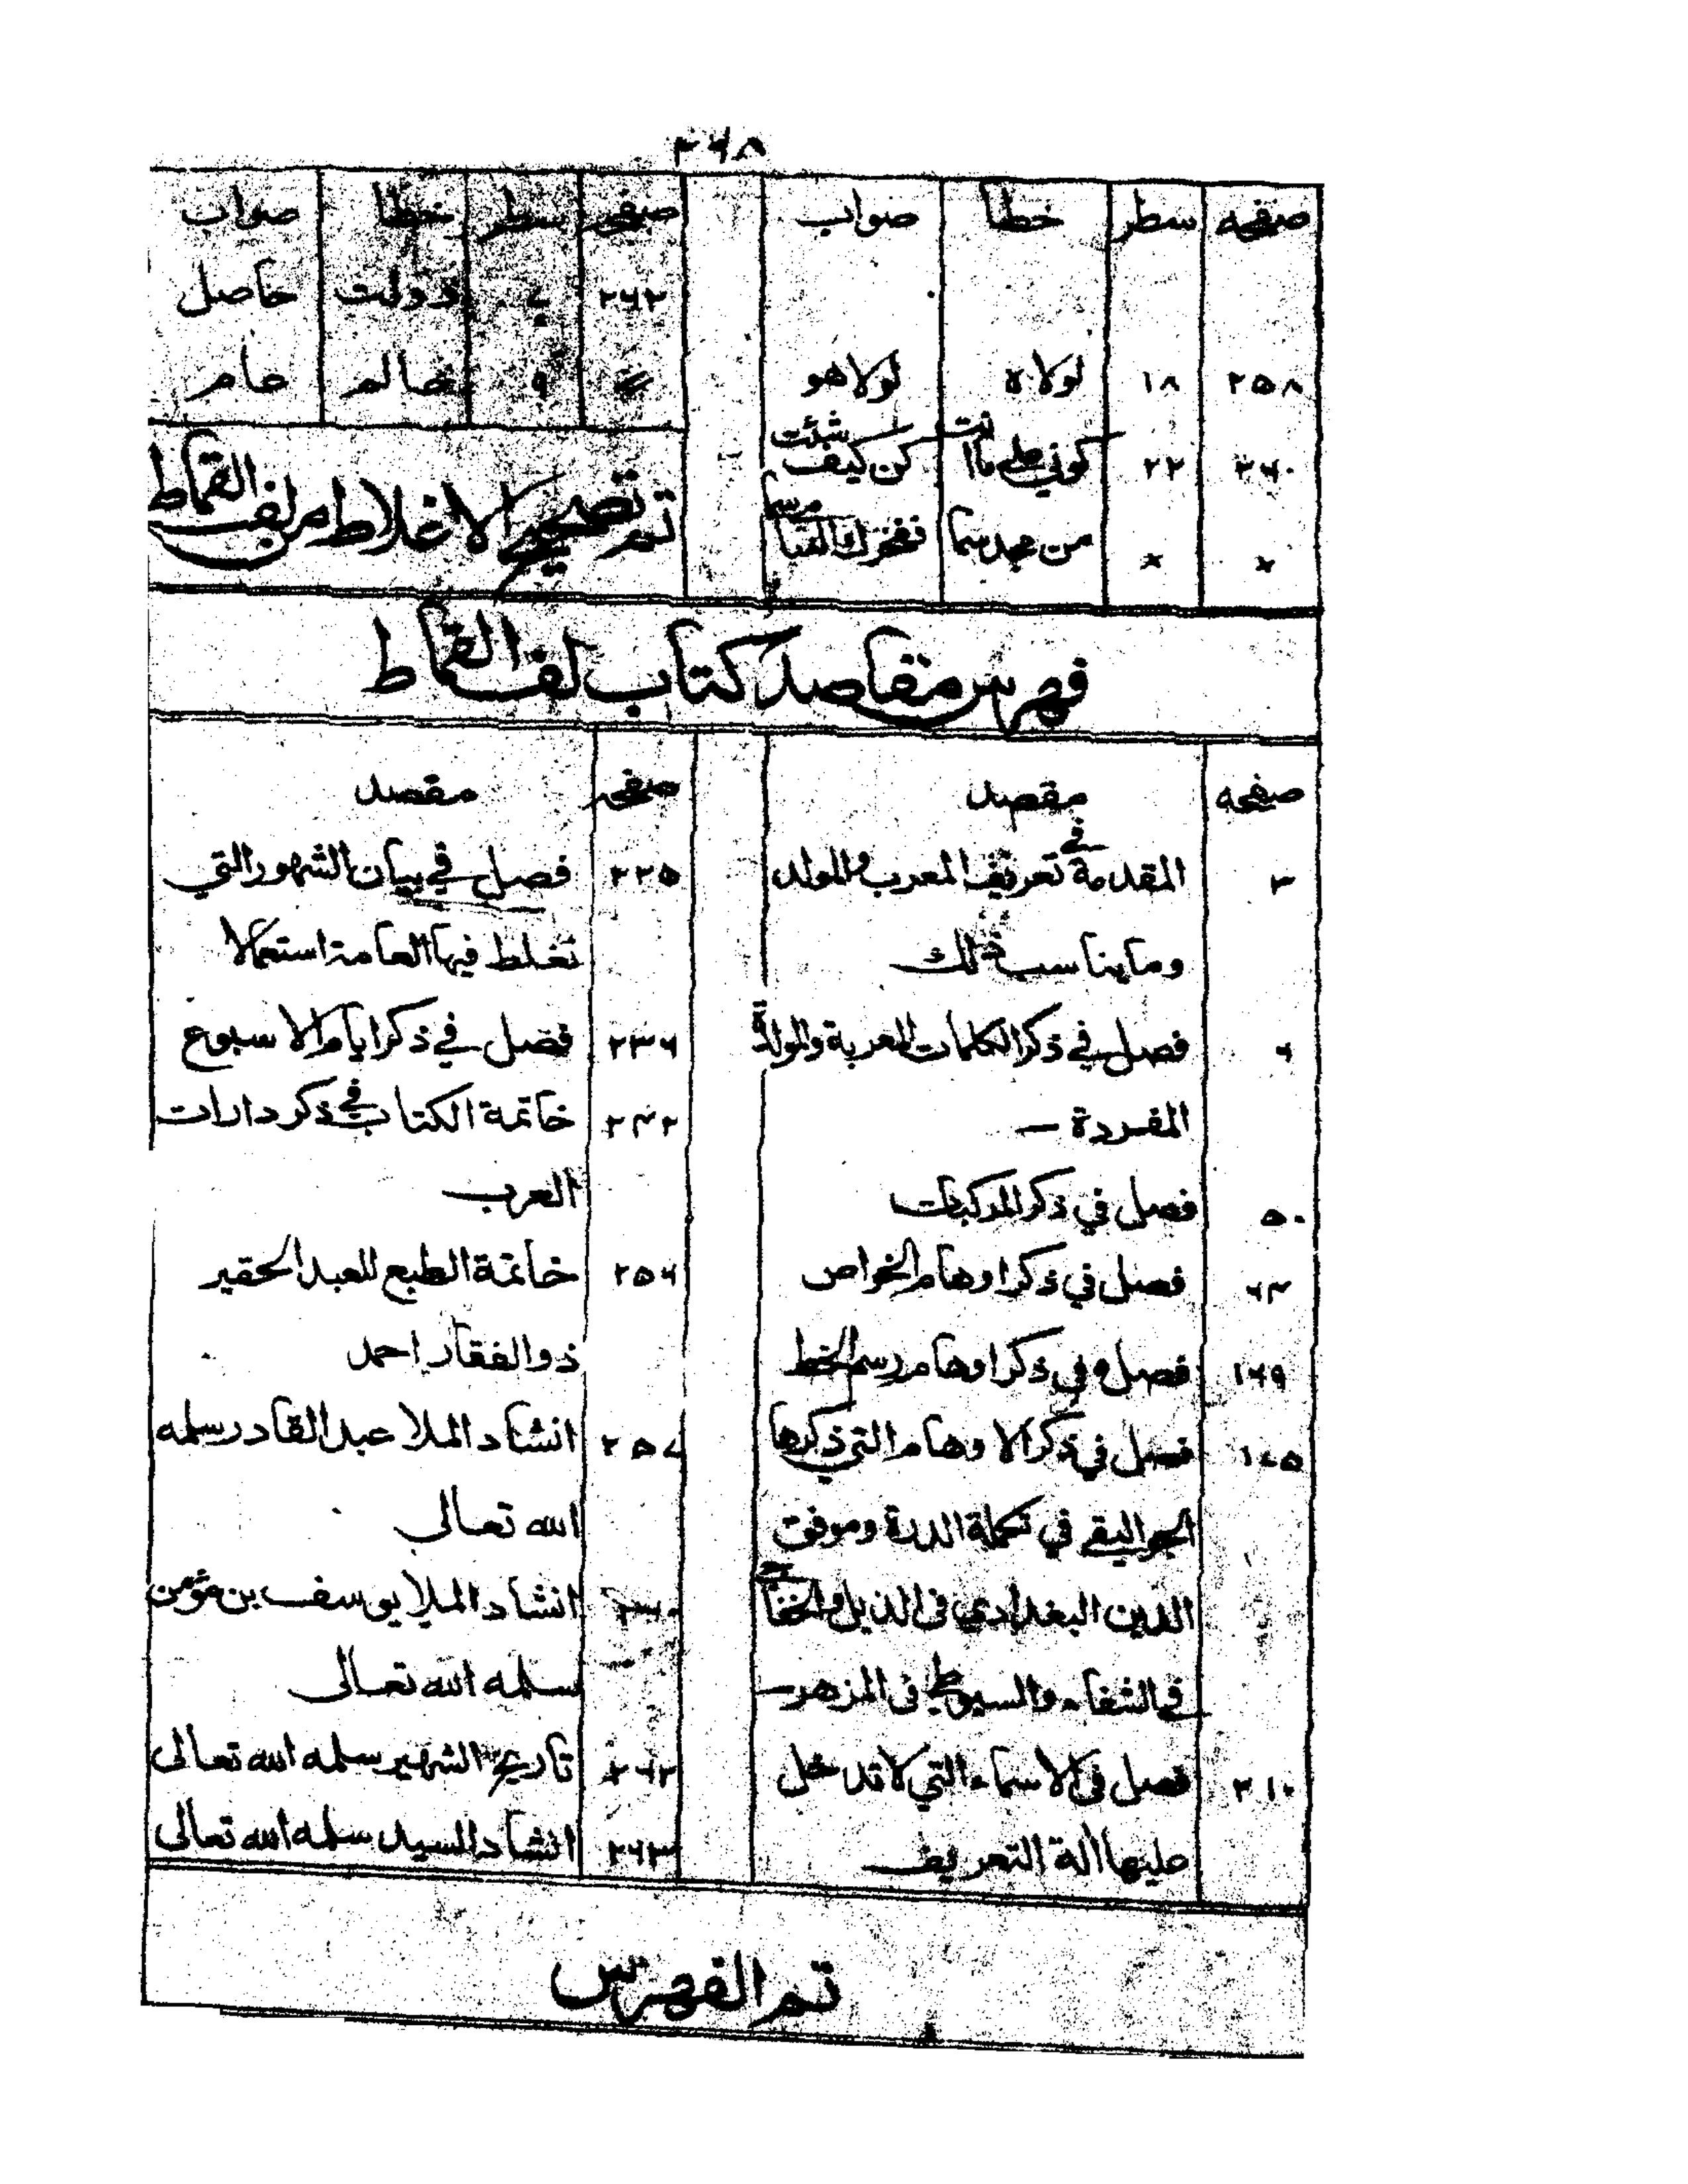 ۲۶۸
صفحه سطر خطا صواب
۲۵۸ ۱۸ لولاه لولاهو
۲۶۰ ۲۲ كوني على ما انت كن كيف شئت
× × من عهد سما
صفحه سطر خطا صواب
۲۶۲ ۷ دولت حاصل
۹ عالم عام
تم تصحيح الاغلاط من لف القماط
فهرس مقاصد كتاب لف القماط
صفحه مقصد
۳ المقدمة في تعريف المعرب والمولد
وما يناسب ذلك
۶ فصل في ذكر الكلمات المعربة والمولدة
المفردة —
۵۰ فصل في ذكر المركبات
۶۴ فصل في ذكر اوهام الخواص
۱۶۹ فصل في ذكر اوهام رسم الخط
۱۷۵ فصل في ذكر الاوهام التي ذكرها
الجواليقي في تكملة الدرة وموفق
الدين البغدادي في الذيل والخفاجي
في الشفاء والسيوطي في المزهر —
۲۱۰ فصل في الاسماء التي لا تدخل
عليها الة التعريف
صفحه مقصد
۲۲۵ فصل في بيان الشهور التي
تغلط فيها العامة استعمالا
۲۳۶ فصل في ذكر ايام الاسبوع
۲۴۲ خاتمة الكتاب في ذكر دارات
العرب
۲۵۶ خاتمة الطبع للعبد الحقير
ذو الفقار احمد
۲۵۷ انشاد الملا عبد القادر سلمه
الله تعالى
۲۶۰ انشاد الملا يوسف بن مؤمن
سلمه الله تعالى
۲۶۲ تاريخ الشهير سلمه الله تعالى
۲۶۳ انشاد السيد سلمه الله تعالى
تم الفهرس